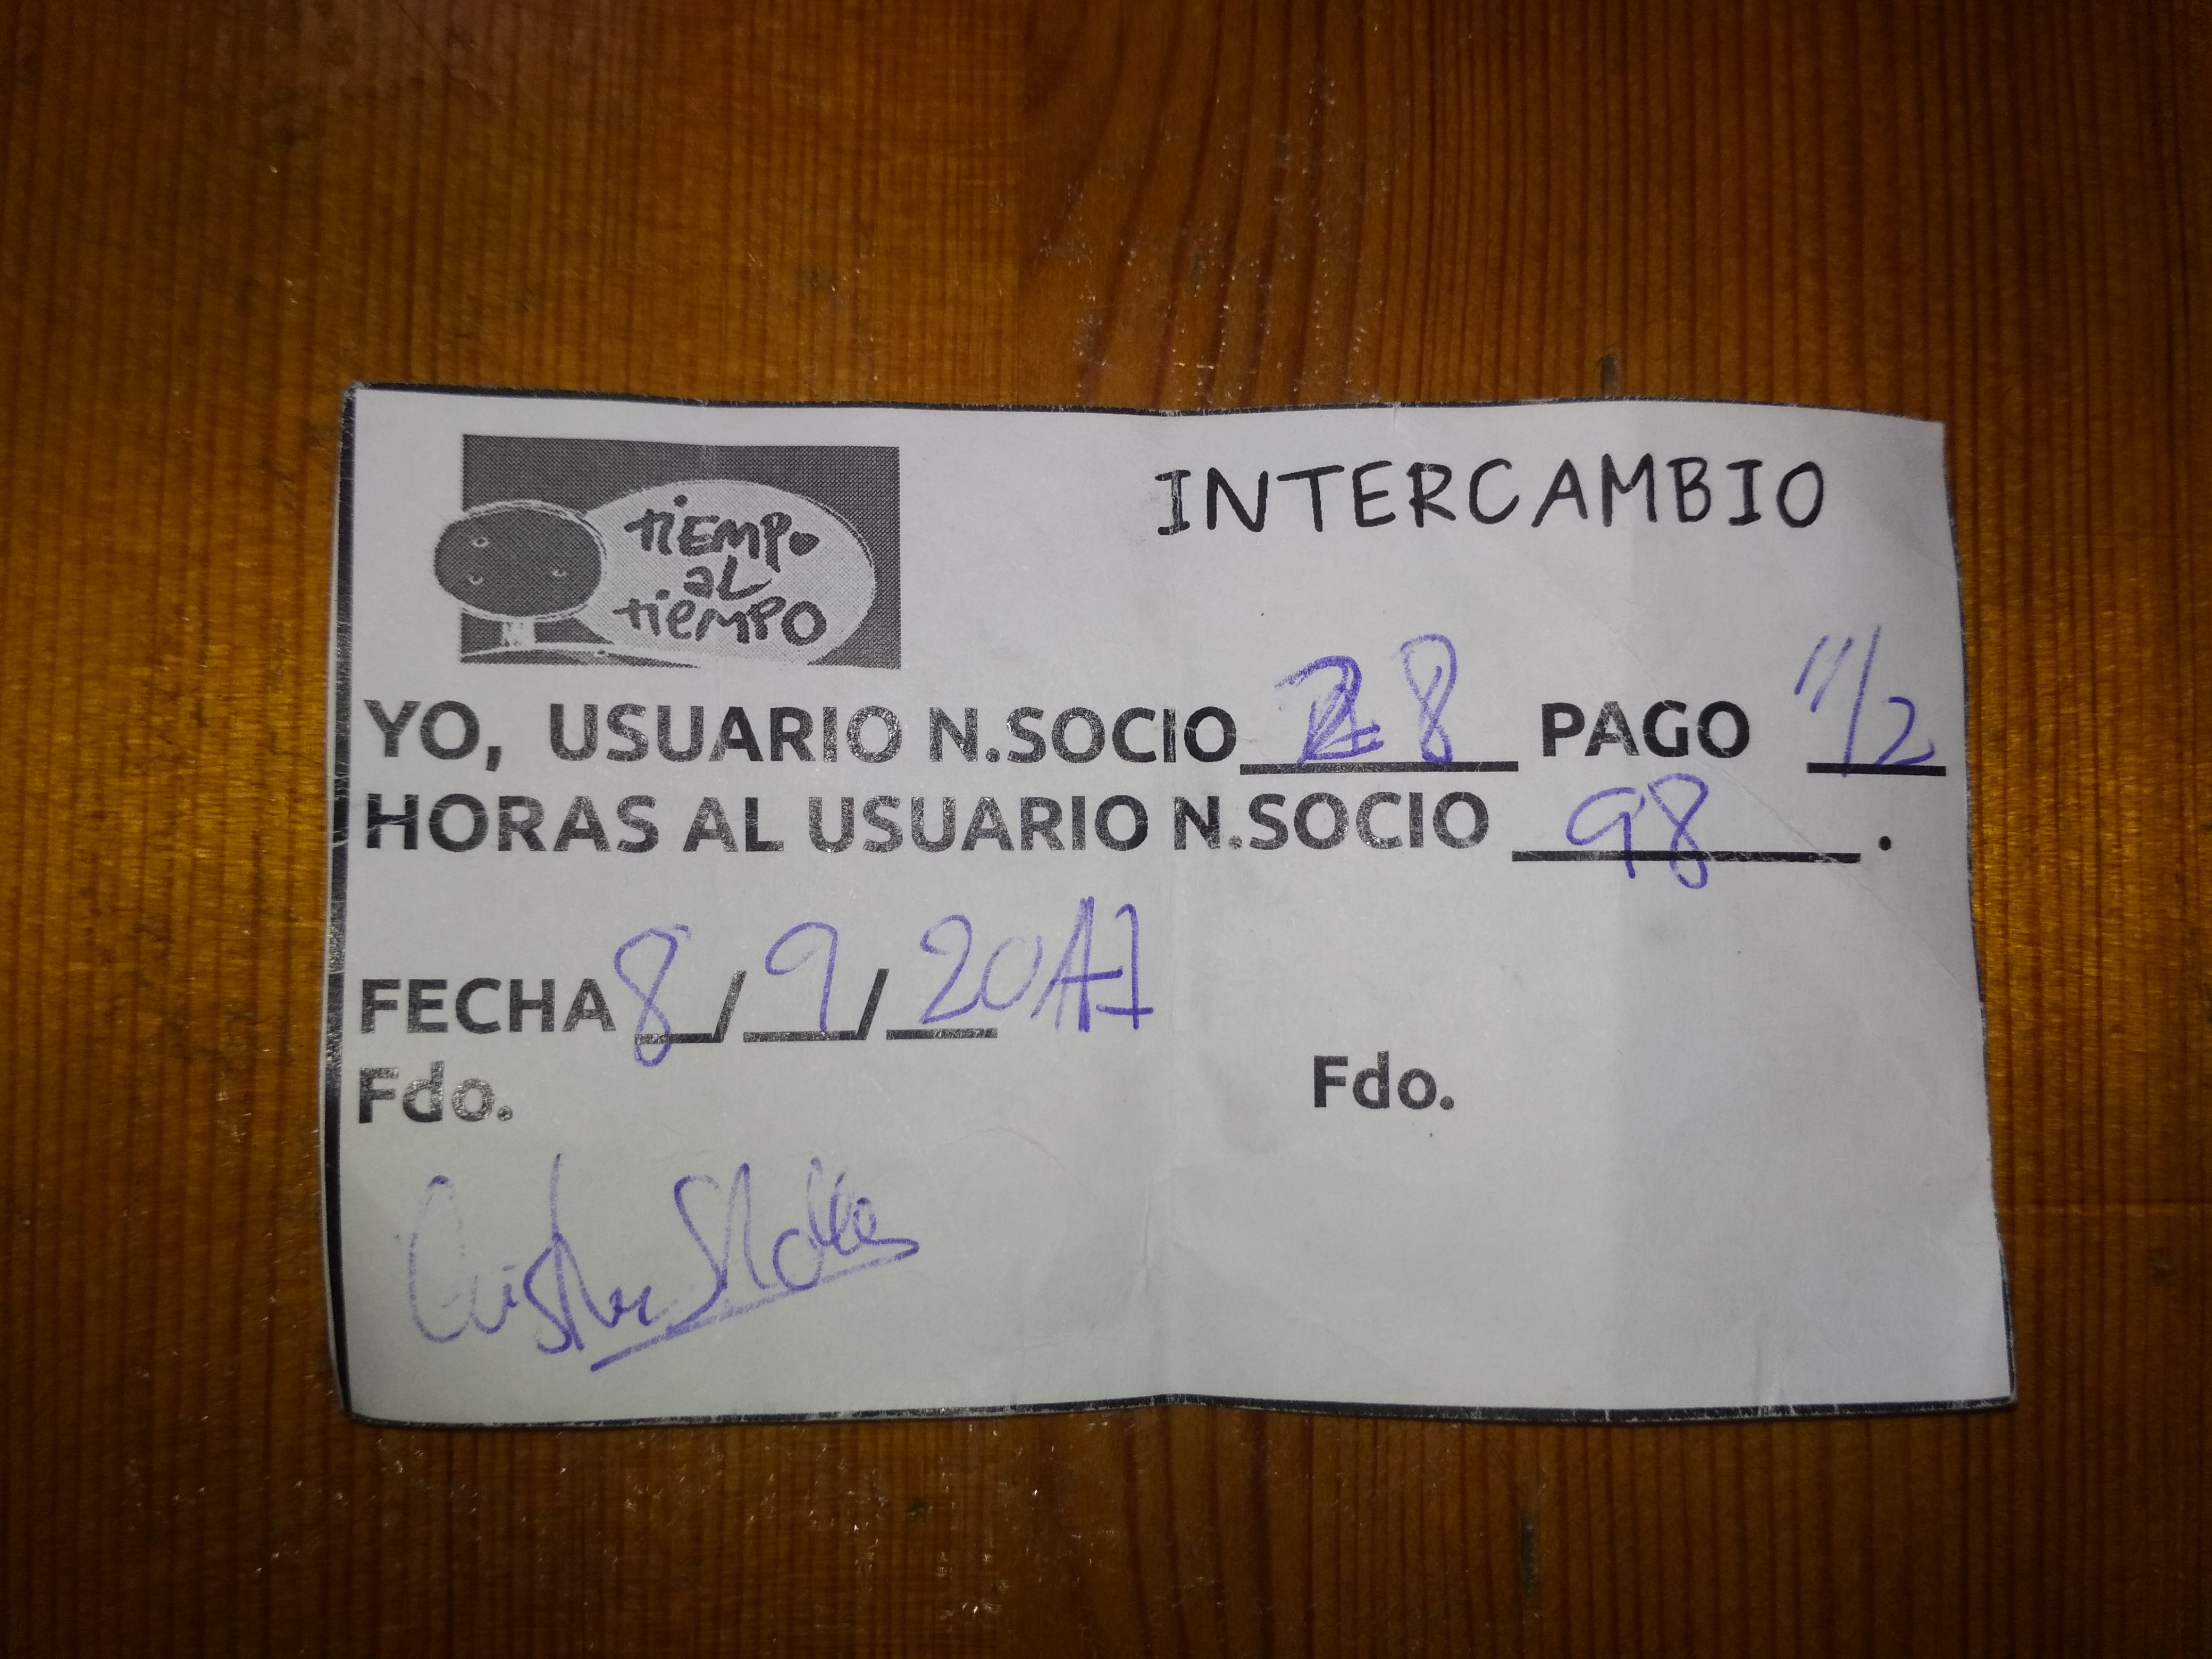 tiEMPo
aL
tiEMPO
INTERCAMBIO
YO, USUARIO N.SOCIO 28 PAGO 1/2
HORAS AL USUARIO N.SOCIO 98.
FECHA 8/9/2017
Fdo. Fdo.